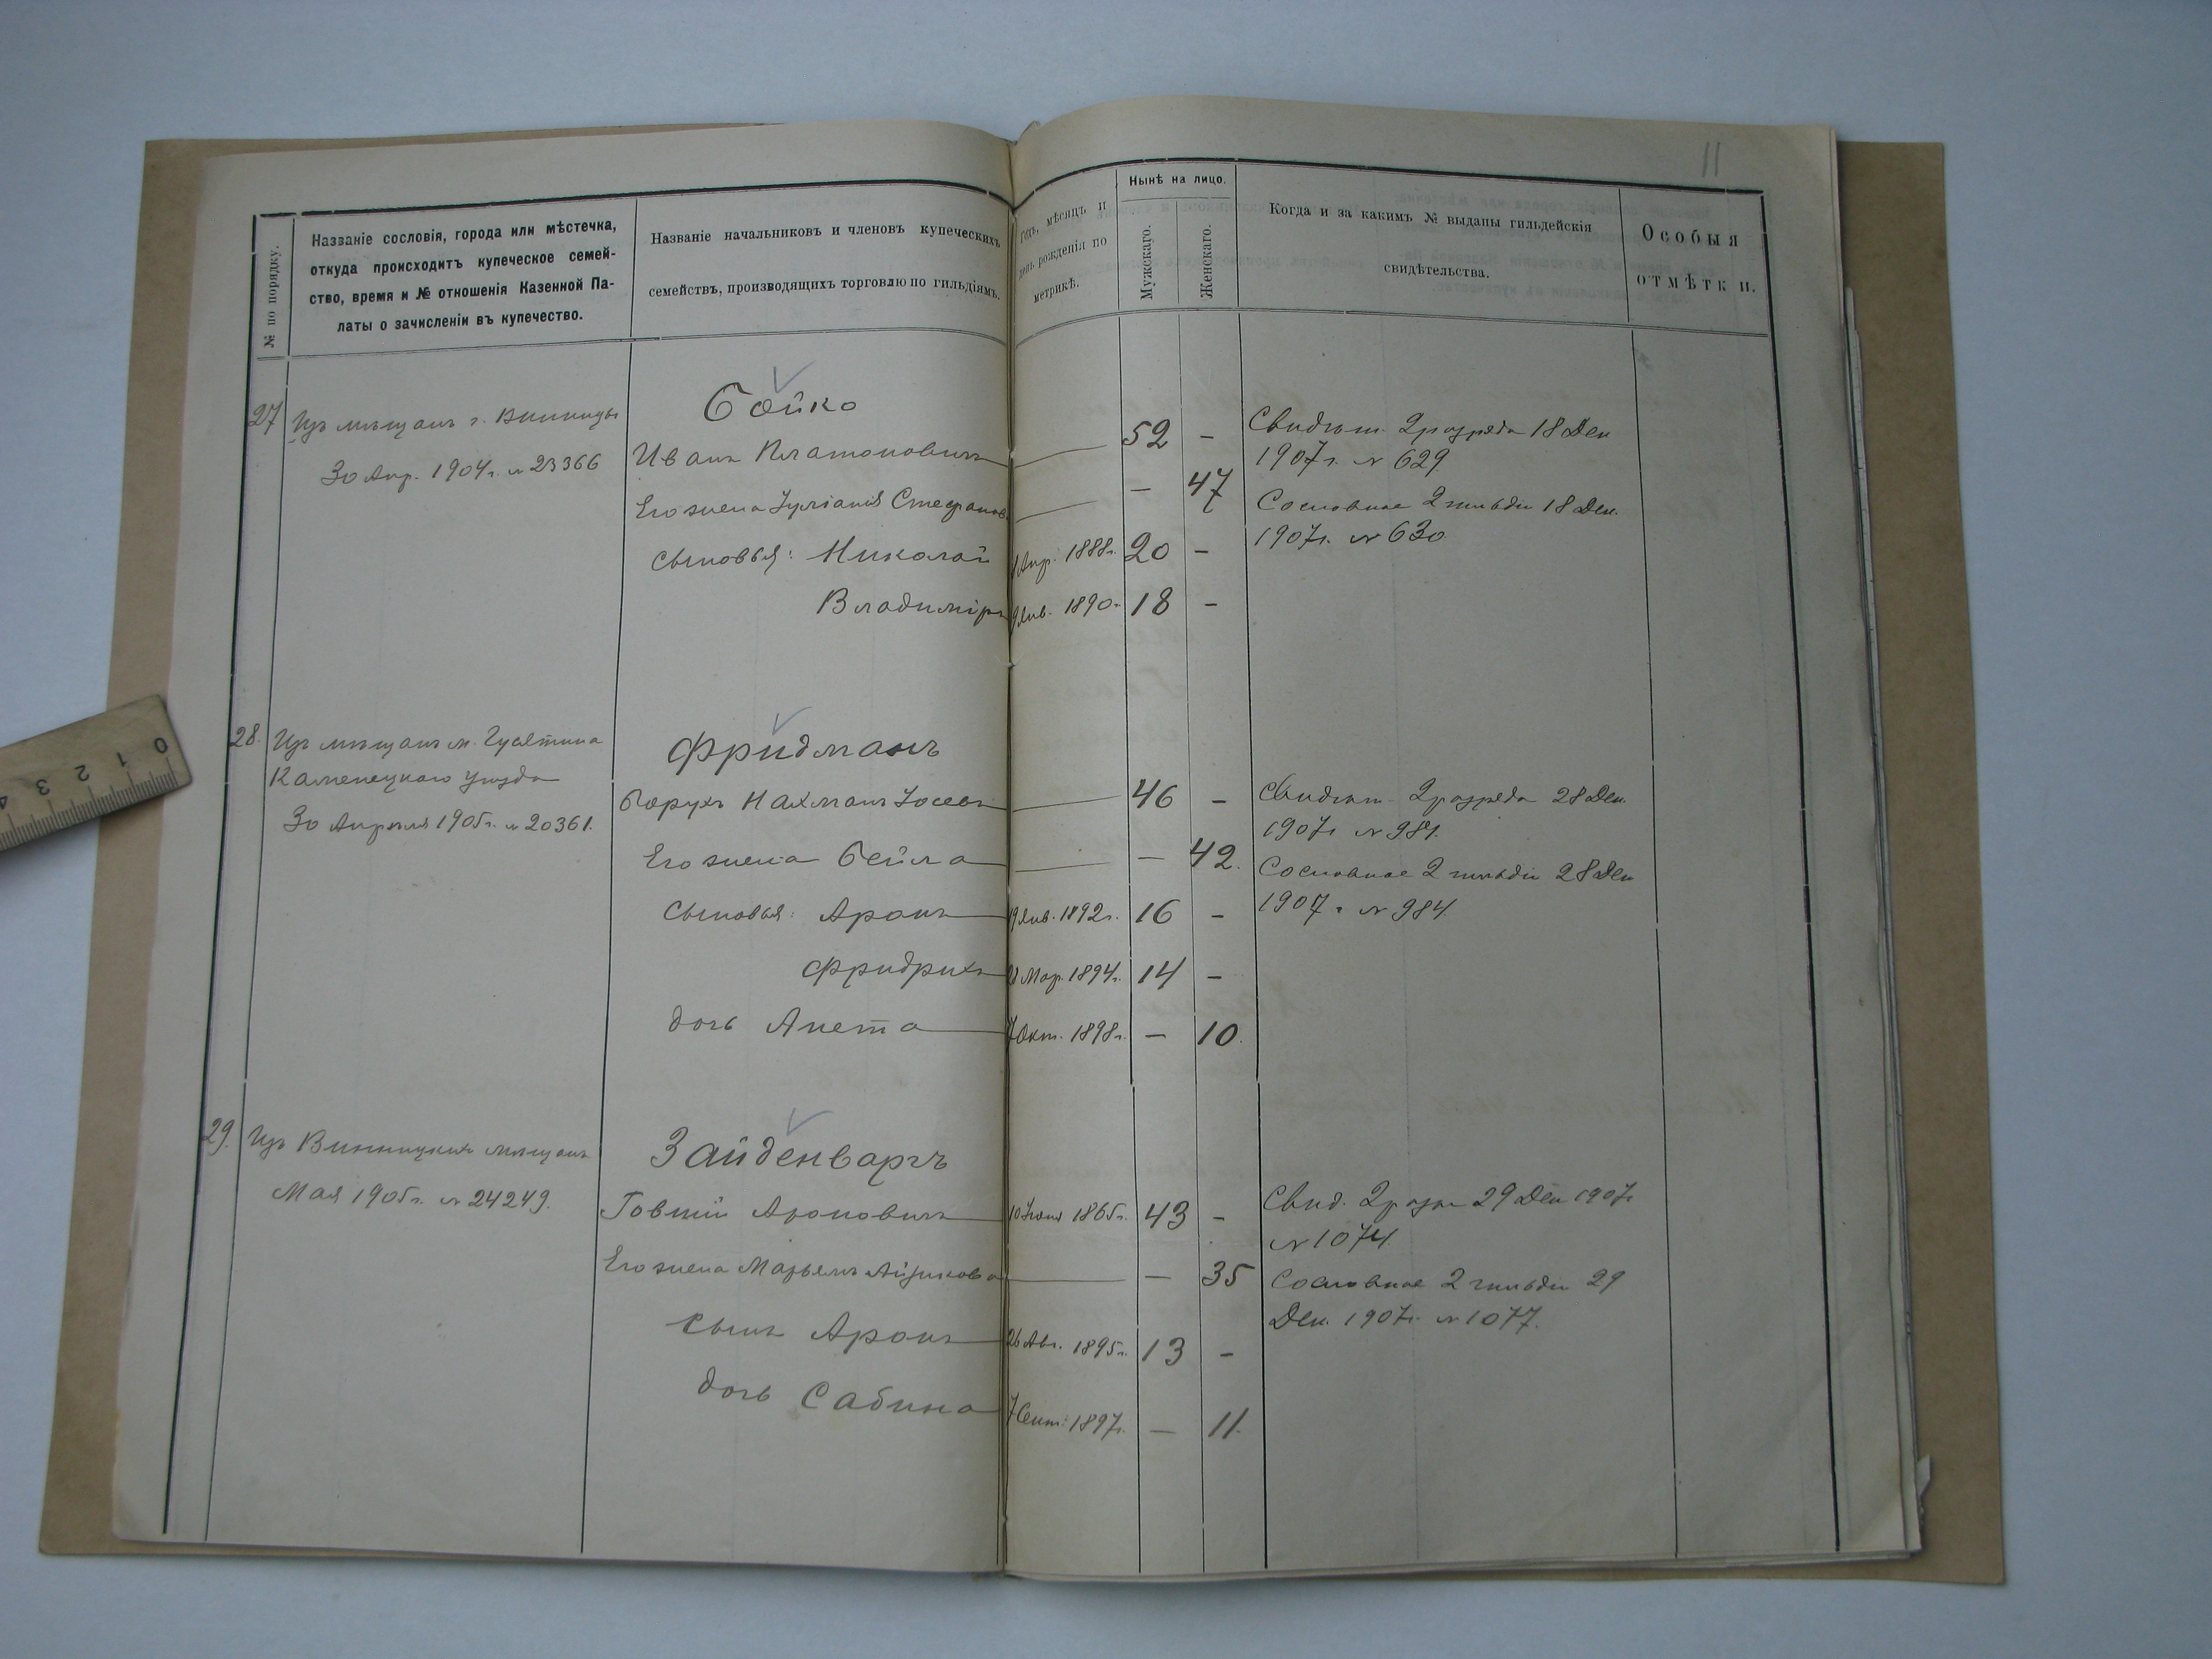 11
№ по порядку.
Названіе сословія, города или мѣстечка,
откуда происходитъ купеческое семей-
ство, время и № отношенія Казенной Па-
латы о зачисленіи въ купечество.
Названіе начальниковъ и членовъ купеческихъ
семействъ, производящихъ торговлю по гильдіямъ.
Годъ, мѣсяцъ и
день рожденія по
метрикѣ.
Нынѣ на лицо.
Мужскаго.
Женскаго.
Когда и за какимъ № выданы гильдейскія
свидѣтельства.
Особыя
отмѣтки.
27
Изъ мѣщанъ г. Винницы
30 Апр. 1904г. № 23366
Бойко
Иванъ Платоновичъ — 52 –
Его жена Іуліанія Стефанов. — – 47
Сыновья: Николай Апр. 1888г. 20 –
Владиміръ Янв. 1890 18 –
Свидѣт. 2 разряда 18 Дек
1907г. № 629
Сословное 2 гильдіи 18 Дек.
1907г. № 630
28.
Изъ мѣщанъ м. Гусятина
Каменецкаго уѣзда
30 Апрѣля 1905г. № 20361.
Фридманъ
Борухъ Нахманъ Іосевъ — 46 –
Его жена Бейла — – 42.
Сыновья: Аронъ 19 Янв. 1892г. 16 –
Фридрихъ Мар. 1894г. 14 –
дочь Анета 7 Окт. 1898г. – 10.
Свидѣт. 2 разряда 28 Дек.
1907г №
Сословное 2 гильдіи 28 Дек
1907 г № 984.
29.
Изъ Винницкихъ мѣщанъ
Мая 1905г. № 24249.
Зайденваргъ
Говшій Ароновичъ 10 1865г. 43 –
Его жена Марьемъ Айзикова — – 35
Сынъ Аронъ 26 Авг. 1895г. 13 –
дочь Сабина 7 Сент. 1897г. – 11.
Свид. 2 разр 29 Дек 1907г
№ 1074
Сословное 2 гильдіи 29
Дек. 1907г. № 1077.
0 1 2 3 4